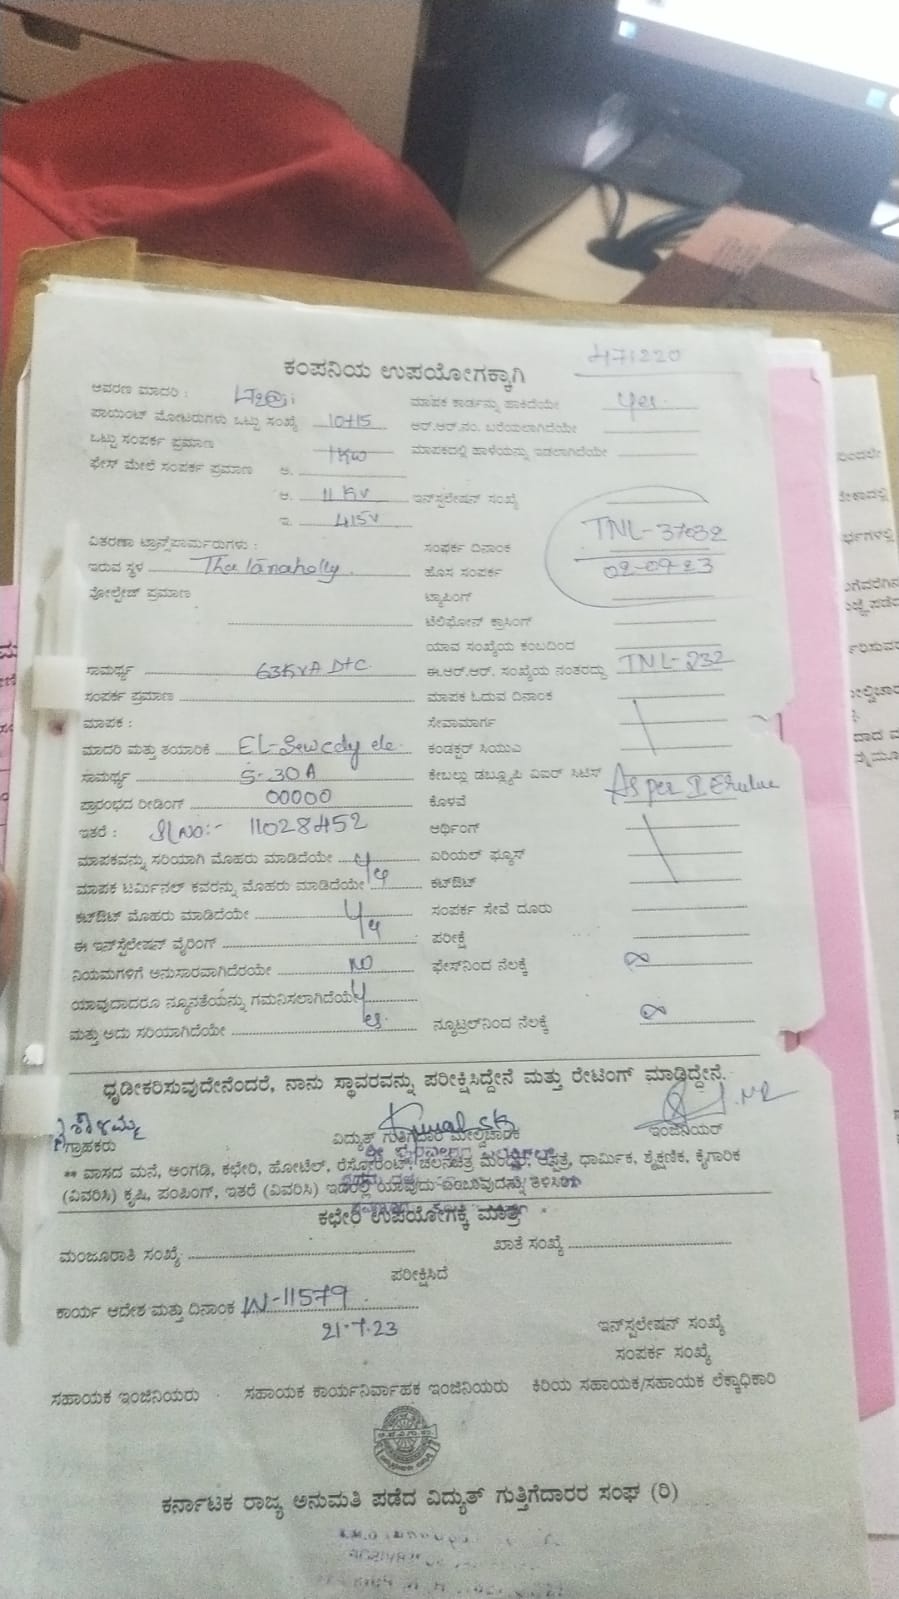 ಕಂಪನಿಯ ಉಪಯೋಗಕ್ಕಾಗಿ
471220
ಆವರಣ ಮಾದರಿ :
ಮಾಪಕ ಕಾರ್ಡನ್ನು ಹಾಕಿದೆಯೇ Yes
ಪಾಯಿಂಟ್ ಮೋಟರುಗಳು ಒಟ್ಟು ಸಂಖ್ಯೆ 10+15
ಆರ್.ಆರ್.ನಂ. ಬರೆಯಲಾಗಿದೆಯೇ
ಒಟ್ಟು ಸಂಪರ್ಕ ಪ್ರಮಾಣ 1KW
ಮಾಪಕದಲ್ಲಿ ಹಾಳೆಯನ್ನು ಇಡಲಾಗಿದೆಯೇ
ಫೇಸ್ ಮೇಲೆ ಸಂಪರ್ಕ ಪ್ರಮಾಣ ಅ.
ಆ. 11 KV ಇನ್‌ಸ್ಟಲೇಷನ್ ಸಂಖ್ಯೆ
ಇ. 415V
TNL-37032
ವಿತರಣಾ ಟ್ರಾನ್ಸ್‌ಫಾರ್ಮರುಗಳು :
ಸಂಪರ್ಕ ದಿನಾಂಕ
ಇರುವ ಸ್ಥಳ
ಹೊಸ ಸಂಪರ್ಕ
ವೋಲ್ಟೇಜ್ ಪ್ರಮಾಣ
ಟ್ಯಾಪಿಂಗ್
ಟೆಲಿಫೋನ್ ಕ್ರಾಸಿಂಗ್
ಯಾವ ಸಂಖ್ಯೆಯ ಕಂಬದಿಂದ
ಸಾಮರ್ಥ್ಯ 63KVA DTC
ಈ.ಆರ್.ಆರ್. ಸಂಖ್ಯೆಯ ನಂತರದ್ದು TNL-232
ಸಂಪರ್ಕ ಪ್ರಮಾಣ
ಮಾಪಕ ಓದುವ ದಿನಾಂಕ
ಮಾಪಕ :
ಸೇವಾಮಾರ್ಗ
ಮಾದರಿ ಮತ್ತು ತಯಾರಿಕೆ EL-Sewedy ele.
ಕಂಡಕ್ಟರ್ ಸಿಯುಎ
ಸಾಮರ್ಥ್ಯ 5-30A
ಕೇಬಲ್ಲು ಡಬ್ಲ್ಯೂಪಿ ವಿಐಆರ್ ಸಿಟಿಸ್ As per
ಪ್ರಾರಂಭದ ರೀಡಿಂಗ್ 00000
ಕೊಳವೆ
ಇತರೆ : Sl No:- 11028452
ಅರ್ಥಿಂಗ್
ಮಾಪಕವನ್ನು ಸರಿಯಾಗಿ ಮೊಹರು ಮಾಡಿದೆಯೇ
ಏರಿಯಲ್ ಫ್ಯೂಸ್
ಮಾಪಕ ಟರ್ಮಿನಲ್ ಕವರನ್ನು ಮೊಹರು ಮಾಡಿದೆಯೇ
ಕಟ್‌ಔಟ್
ಕಟ್‌ಔಟ್ ಮೊಹರು ಮಾಡಿದೆಯೇ
ಸಂಪರ್ಕ ಸೇವೆ ದೂರು
ಈ ಇನ್‌ಸ್ಟಲೇಷನ್ ವೈರಿಂಗ್
ಪರೀಕ್ಷೆ
ನಿಯಮಗಳಿಗೆ ಅನುಸಾರವಾಗಿದೆರಯೇ NO
ಫೇಸ್‌ನಿಂದ ನೆಲಕ್ಕೆ ∞
ಯಾವುದಾದರೂ ನ್ಯೂನತೆಯನ್ನು ಗಮನಿಸಲಾಗಿದೆಯೇ
ಮತ್ತು ಅದು ಸರಿಯಾಗಿದೆಯೇ
ನ್ಯೂಟ್ರಲ್‌ನಿಂದ ನೆಲಕ್ಕೆ ∞
ಧೃಡೀಕರಿಸುವುದೇನೆಂದರೆ, ನಾನು ಸ್ಥಾವರವನ್ನು ಪರೀಕ್ಷಿಸಿದ್ದೇನೆ ಮತ್ತು ರೇಟಿಂಗ್ ಮಾಡಿದ್ದೇನೆ.
ಗ್ರಾಹಕರು ವಿದ್ಯುತ್ ಗುತ್ತಿಗೆದಾರ ಮೇಲ್ವಿಚಾರಕ ಇಂಜಿನಿಯರ್
** ವಾಸದ ಮನೆ, ಅಂಗಡಿ, ಕಛೇರಿ, ಹೋಟೆಲ್, ರೆಸ್ಟೋರೆಂಟ್, ಚಲನಚಿತ್ರ ಮಂದಿರ, ಆಸ್ಪತ್ರೆ, ಧಾರ್ಮಿಕ, ಶೈಕ್ಷಣಿಕ, ಕೈಗಾರಿಕ
(ವಿವರಿಸಿ) ಕೃಷಿ, ಪಂಪಿಂಗ್, ಇತರೆ (ವಿವರಿಸಿ) ಇದರಲ್ಲಿ ಯಾವುದು ಎಂಬುವುದನ್ನು ತಿಳಿಸಿರಿ
ಕಛೇರಿ ಉಪಯೋಗಕ್ಕೆ ಮಾತ್ರ
ಮಂಜೂರಾತಿ ಸಂಖ್ಯೆ
ಖಾತೆ ಸಂಖ್ಯೆ
ಪರೀಕ್ಷಿಸಿದೆ
ಕಾರ್ಯ ಆದೇಶ ಮತ್ತು ದಿನಾಂಕ W-11579
21-7-23
ಇನ್‌ಸ್ಟಲೇಷನ್ ಸಂಖ್ಯೆ
ಸಂಪರ್ಕ ಸಂಖ್ಯೆ
ಸಹಾಯಕ ಇಂಜಿನಿಯರು ಸಹಾಯಕ ಕಾರ್ಯನಿರ್ವಾಹಕ ಇಂಜಿನಿಯರು ಕಿರಿಯ ಸಹಾಯಕ/ಸಹಾಯಕ ಲೆಕ್ಕಾಧಿಕಾರಿ
ಕರ್ನಾಟಕ ರಾಜ್ಯ ಅನುಮತಿ ಪಡೆದ ವಿದ್ಯುತ್ ಗುತ್ತಿಗೆದಾರರ ಸಂಘ (ರಿ)